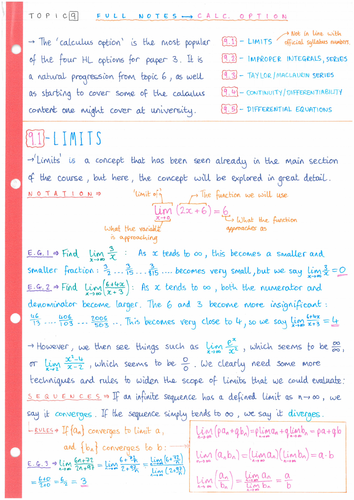 TOPIC 9 FULL NOTES → CALC. OPTION
→ The 'calculus option' is the most popular
of the four HL options for paper 3. It is
a natural progression from topic 6, as well
as starting to cover some of the calculus
content one might cover at university.
Not in line with
official syllabus numbers
9.1 - LIMITS
9.2 - IMPROPER INTEGRALS, SERIES
9.3 - TAYLOR/MACLAURIN SERIES
9.4 - CONTINUITY/DIFFERENTIABILITY
9.5 - DIFFERENTIAL EQUATIONS
9.1 - LIMITS
→ 'Limits' is a concept that has been seen already in the main section
of the course, but here, the concept will be explored in great detail.
NOTATION →
'Limit of'
The function we will use
lim x→ (2x+6) = 6
What the variable
is approaching
What the function
approaches as
E.G.1 → Find lim x→∞ 3/x : As x tends to ∞, this becomes a smaller and
smaller fraction: ... becomes very small, but we say lim x→∞ = 0
E.G.2 → Find lim x→∞ (6+4x / x+3) : As x tends to ∞, both the numerator and
denominator become larger. The 6 and 3 become more insignificant:
46/13 .... 406/103 .... 2006/503 ... This becomes very close to 4, so we say lim x→∞ 6+4x / x+3 = 4
→ However, we then see things such as lim x→∞ e^x / x², which seems to be ∞/∞,
or lim x→2 x²-4 / x-2, which seems to be 0/0. We clearly need some more
techniques and rules to widen the scope of limits that we could evaluate:
SEQUENCES → If an infinite sequence has a defined limit as n→∞, we
say it converges. If the sequence simply tends to ∞, we say it diverges.
RULES → If {an} converges to limit a,
and {bn} converges to b:
lim n→∞ (pan + qbn) = p lim an + q lim bn = pa + qb
lim n→∞ (an bn) = (lim an)(lim bn) = a·b
lim n→∞ (an / bn) = lim an / lim bn = a/b
E.G.3 →
= 3